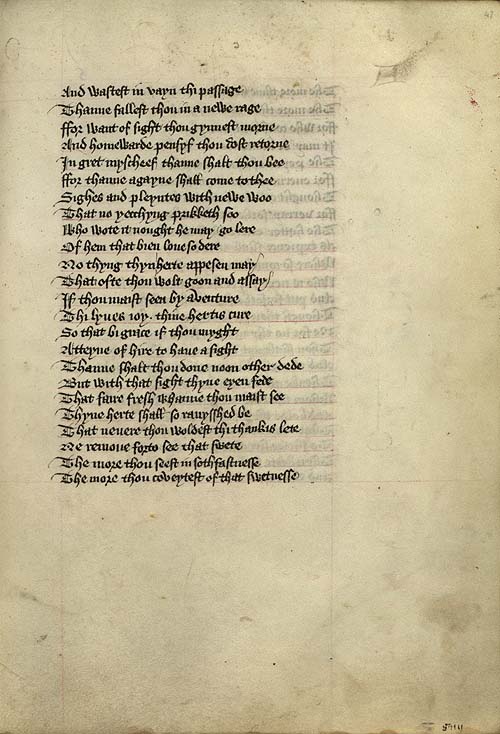 And wastest in vayn thi passage
Thanne fallest thou in a newe rage
ffor want of sight thou gynnest morne
And homewarde pensyf thou dost retorne
In gret myscheef thanne shalt thou bee
ffor thanne agayne shall come to thee
Sighes and pleyntes with newe woo
That no yecchyng prikketh soo
Who wote it nought he may go lere
Of hem that bien love so dere
No thyng thyn herte appesen may
That ofte thou wolt goon and assay
If thou maist seen by aventure
Thi lyves ioy. thine hertis cure
So that bi grace if thou myght
Atteyne of hire to have a sight
Thanne shalt thou done noon other dede
But with that sight thyne eyen fede
That faire fresh whanne thou maist see
Thyne herte shall so ravysshed be
That nevere thou woldest thi thankis lete
Ne remove forto see that swete
The more thou seest in sothfastnesse
The more thou coveytest of that swetnesse